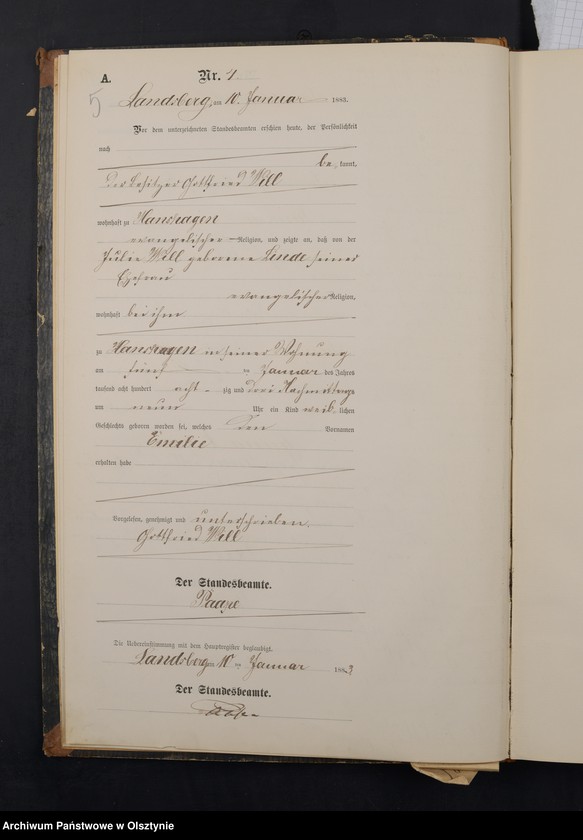 A. Nr. 4.
5
Landsberg, am 10. Januar 1883.
Vor dem unterzeichneten Standesbeamten erschien heute, der Persönlichkeit
nach
be kannt,
der Besitzer Gottfried Will
wohnhaft zu Hanshagen
evangelischer Religion, und zeigte an, daß von der
Julie Will geborene Linde seiner
Ehefrau
evangelischer Religion,
wohnhaft bei ihm
zu Hanshagen in seiner Wohnung
am fünf ten Januar des Jahres
tausend acht hundert acht zig und drei Nachmittags
um neun Uhr ein Kind weib lichen
Geschlechts geboren worden sei, welches den Vornamen
Emilie
erhalten habe
Vorgelesen, genehmigt und unterschrieben.
Gottfried Will
Der Standesbeamte.
Die Uebereinstimmung mit dem Hauptregister beglaubigt.
Landsberg am 10 ten Januar 1883
Der Standesbeamte.
Archiwum Państwowe w Olsztynie